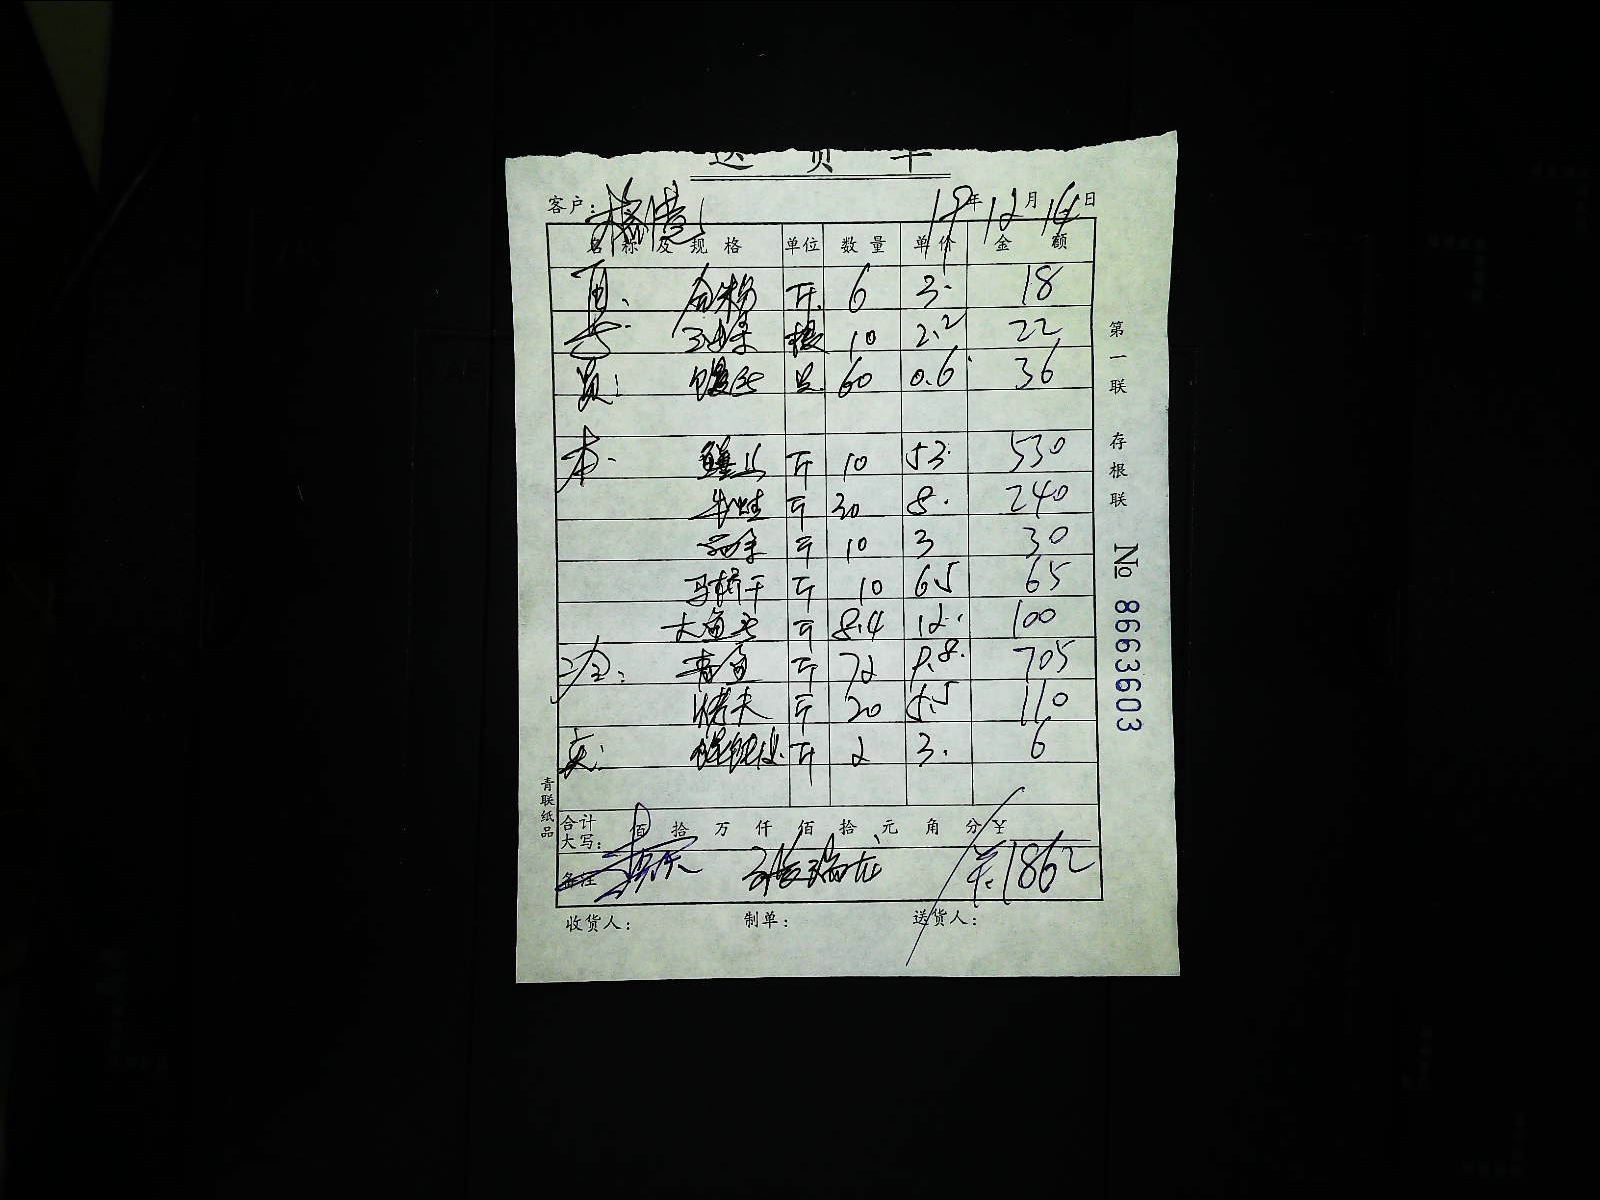 送货单
客户: 19年12月14日
名称及规格 单位 数量 单价 金额
斤 6 3. 18
10 2.2 22
只 60 0.6 36
本. 鳝丝 斤 10 53. 530
牛蛙 斤 30 8. 240
斤 10 3 30
马桥干 斤 10 6.5 65
大鱼头 斤 8.4 12. 100
冷: 青鱼 斤 72 9.8. 705
烤夫 斤 20 5.5 110
点: 斤 2 3. 6
合计大写: 佰 拾 万 仟 佰 拾 元 角 分 ¥
备注 张瑞龙 ¥:1862
收货人: 制单: 送货人:
第一联 存根联 № 8663603
青联纸品